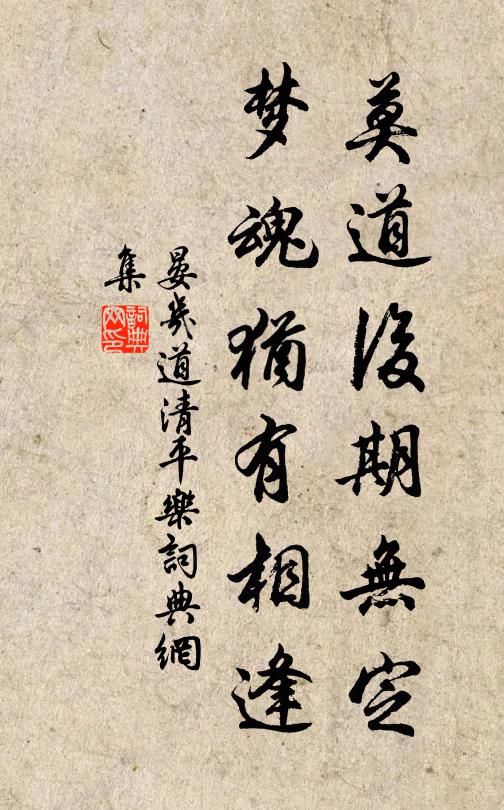 莫道後期無定
梦魂猶有相逢
晏幾道清平樂詞典網
集
詞典网印